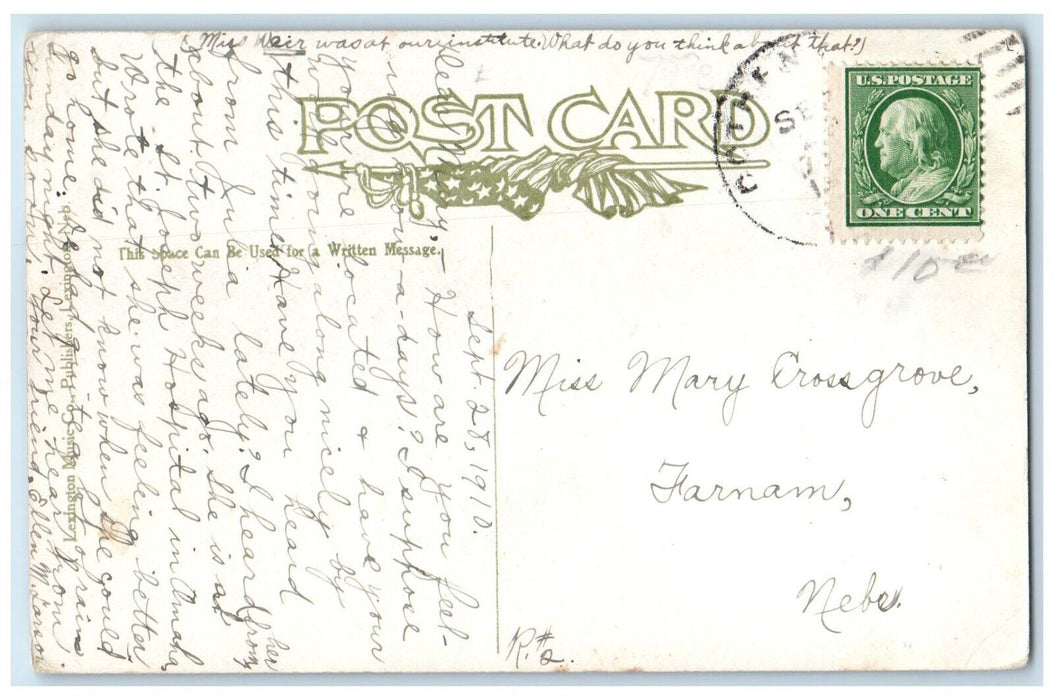 ( Miss Weir was at our institute. What do you think about that?)
POST CARD
U.S. POSTAGE
ONE CENT
This Space Can Be Used for a Written Message.
Lexington Music Co., Publishers, Lexington, Neb.
Sept. 28, 1910.
Dear Mary,- How are you feel-
ing now-a-days? I suppose
you are located & have your
school going along nicely by
this time. Have you heard
from Julia lately? I heard from her
about two weeks ago. She is at
the St. Joseph Hospital in Omaha,
Wrote that she was feeling better
but she did not know when she could
go home. We had quite a big rain
Sunday night. Let me hear from
you soon. Your friend, Ellen M. Larson
Miss Mary Crossgrove,
Farnam,
Nebr.
R. #2.